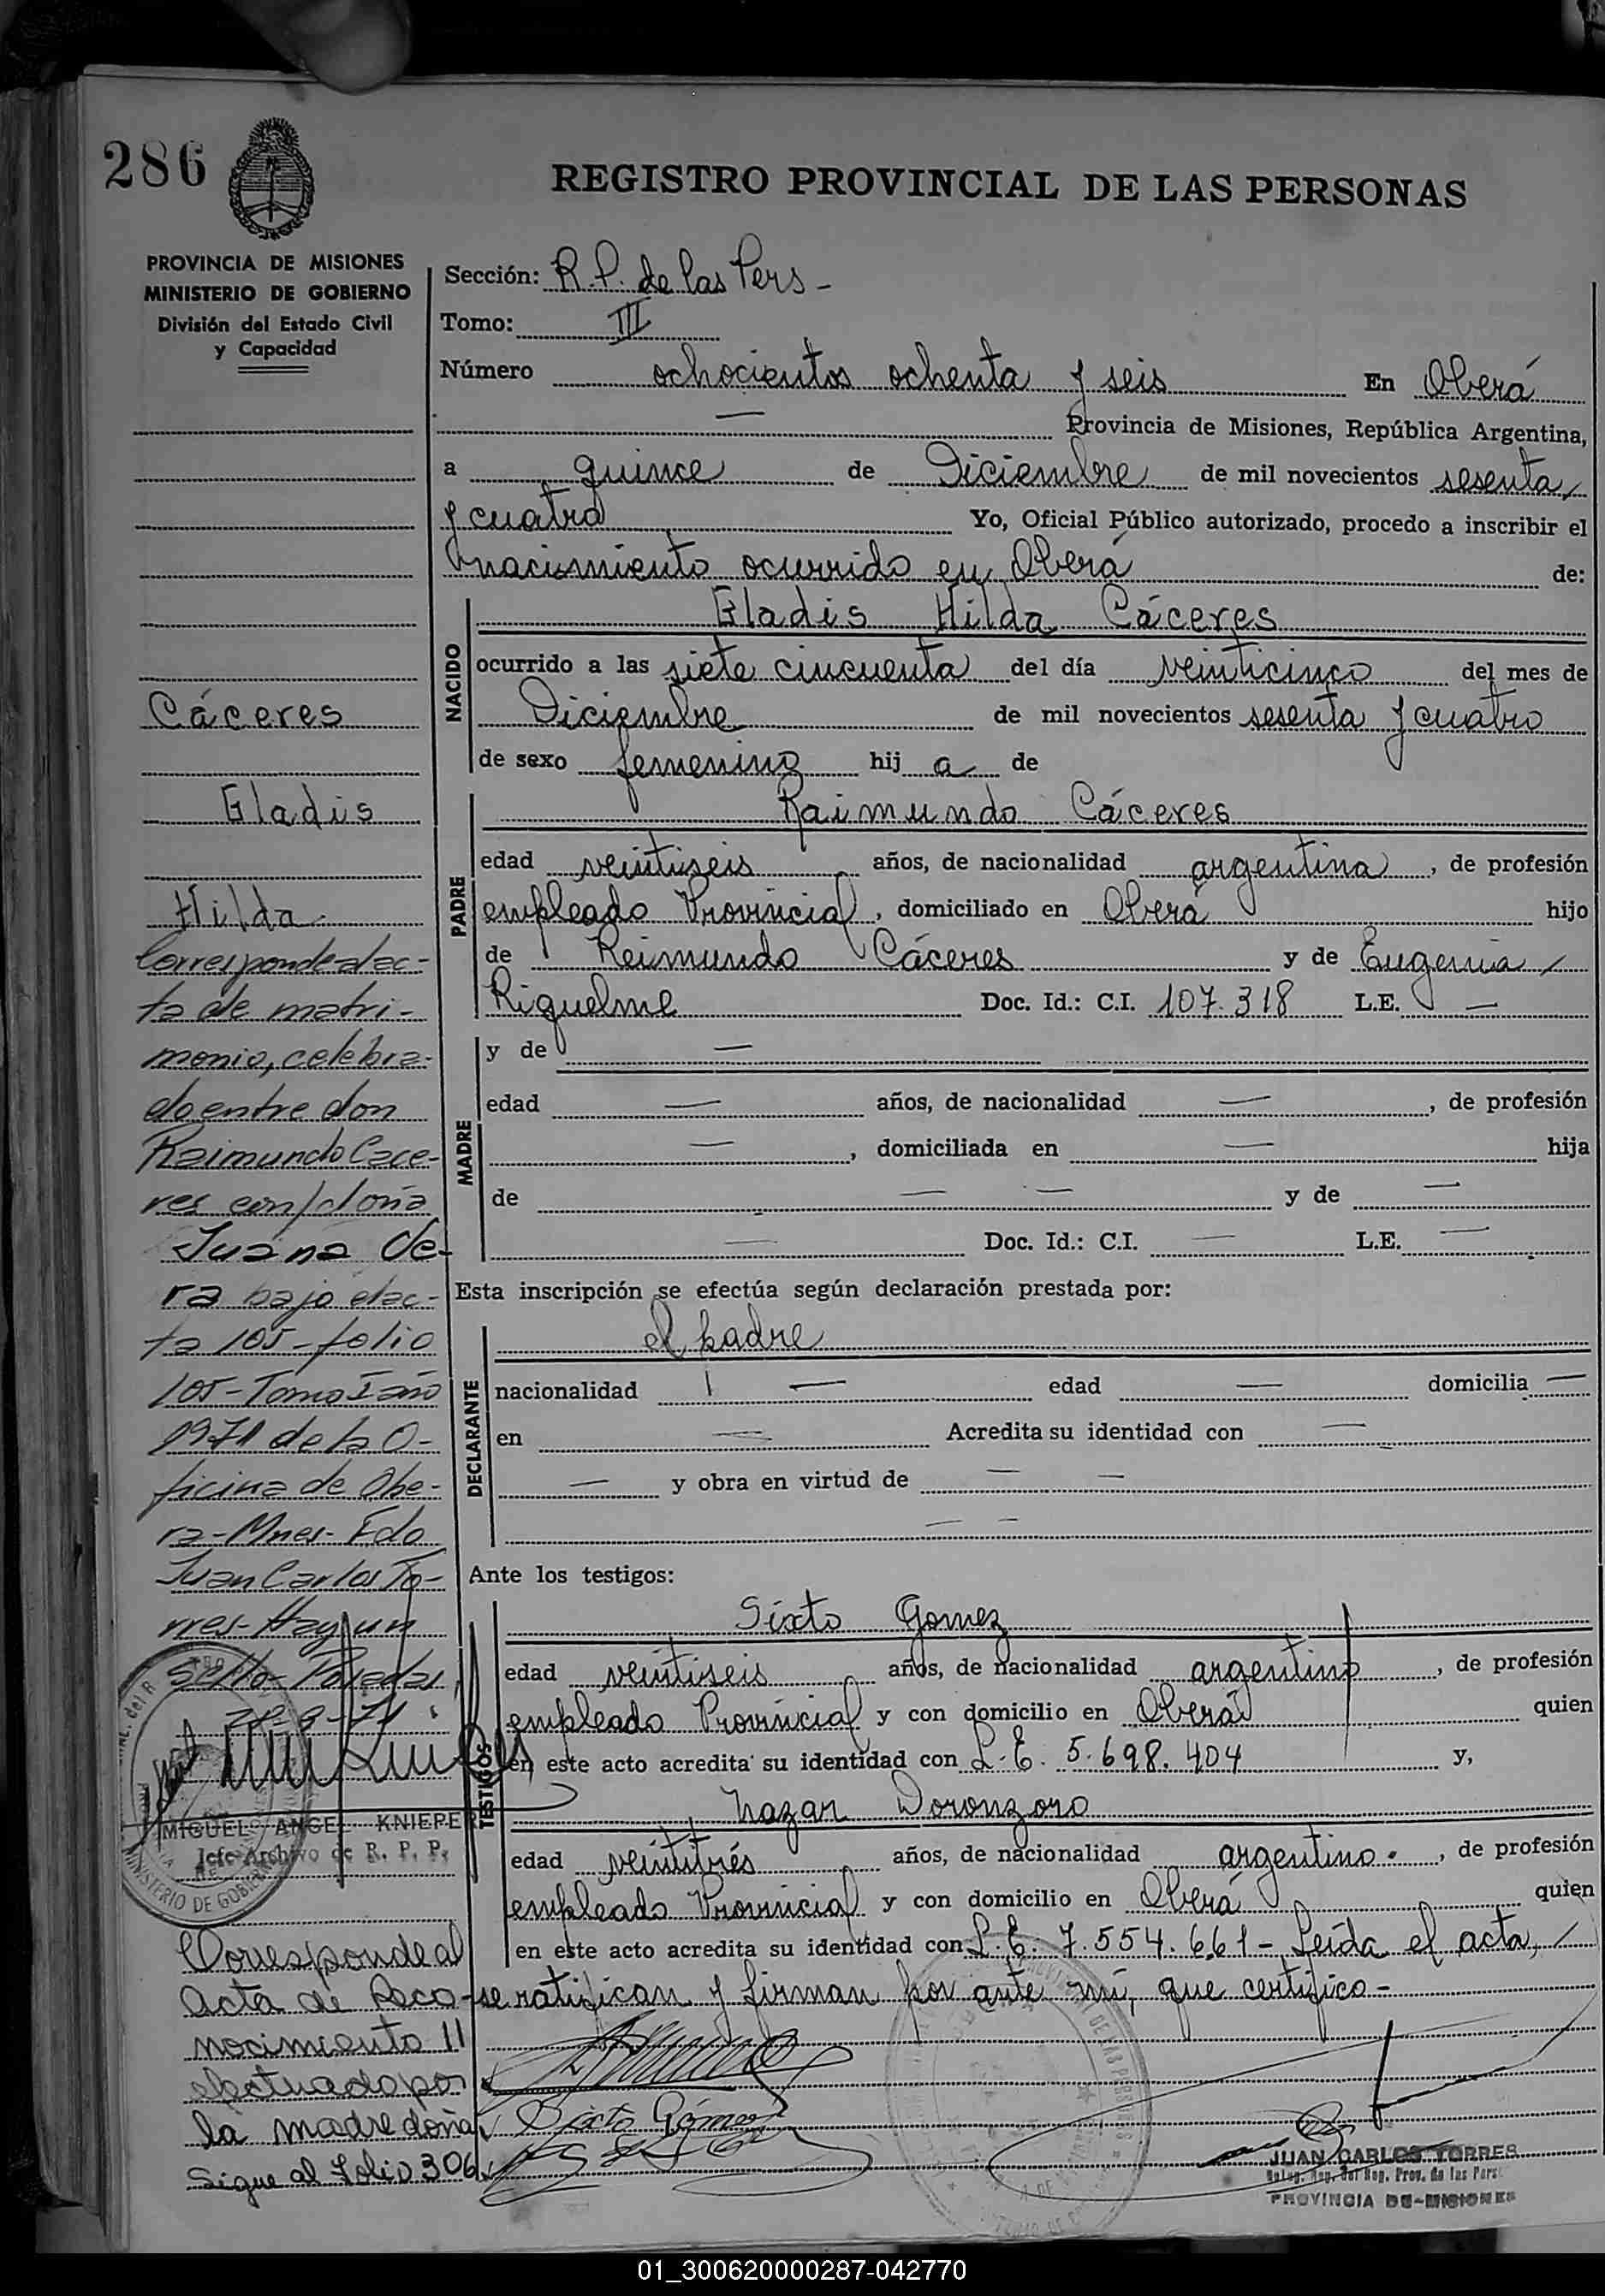 286
REGISTRO PROVINCIAL DE LAS PERSONAS
PROVINCIA DE MISIONES
MINISTERIO DE GOBIERNO
División del Estado Civil
y Capacidad
Sección: R.P. de las Pers -
Tomo: III
Número ochocientos ochenta y seis En Oberá
— Provincia de Misiones, República Argentina,
a quince de Diciembre de mil novecientos sesenta
y cuatro Yo, Oficial Público autorizado, procedo a inscribir el
nacimiento ocurrido en Oberá de:
NACIDO
Gladis Hilda Cáceres
ocurrido a las siete cincuenta del día veinticinco del mes de
Diciembre de mil novecientos sesenta y cuatro
de sexo femenino hij a de
PADRE
Raimundo Cáceres
edad veintiseis años, de nacionalidad argentina, de profesión
empleado Provincial, domiciliado en Oberá hijo
de Reimundo Cáceres y de Eugenia /
Riquelme Doc. Id.: C.I. 107.318 L.E. —
MADRE
y de —
edad — años, de nacionalidad —, de profesión
—, domiciliada en — hija
de — — y de —
— Doc. Id.: C.I. — L.E. —
Esta inscripción se efectúa según declaración prestada por:
DECLARANTE
el padre
nacionalidad — edad — domicilia —
en — Acredita su identidad con —
— y obra en virtud de — —
— —
Ante los testigos:
TESTIGOS
Sixto Gomez
edad veintiseis años, de nacionalidad argentino, de profesión
empleado Provincial y con domicilio en Oberá quien
en este acto acredita su identidad con L.E. 5.698.404 y,
Nazar Doronzoro
edad veintitrés años, de nacionalidad argentino, de profesión
empleado Provincial y con domicilio en Oberá quien
en este acto acredita su identidad con L.E. 7.554.661 - Leída el acta, /
se ratifican y firman por ante mí, que certifico -
Sixto Gómez
JUAN CARLOS TORRES
PROVINCIA DE MISIONES
Cáceres
Gladis
Hilda
Corresponde al ac-
ta de matri-
monio, celebra-
do entre don
Raimundo Cace-
res con/doña
Juana De-
ra bajo el ac-
ta 105-folio
105-Tomo I año
1971 de la O-
ficina de Obe-
ra-Mnes-Fdo
Juan Carlos To-
rres-Hay un
sello-Posadas
MIGUEL ANGEL KNIEPER
Jefe Archivo de R. P. P.
MINISTERIO DE GOBIER
Corresponde al
acta de Reco-
nocimiento 11
efectuado por
la madre doña
Sigue al folio 306
01_300620000287-042770